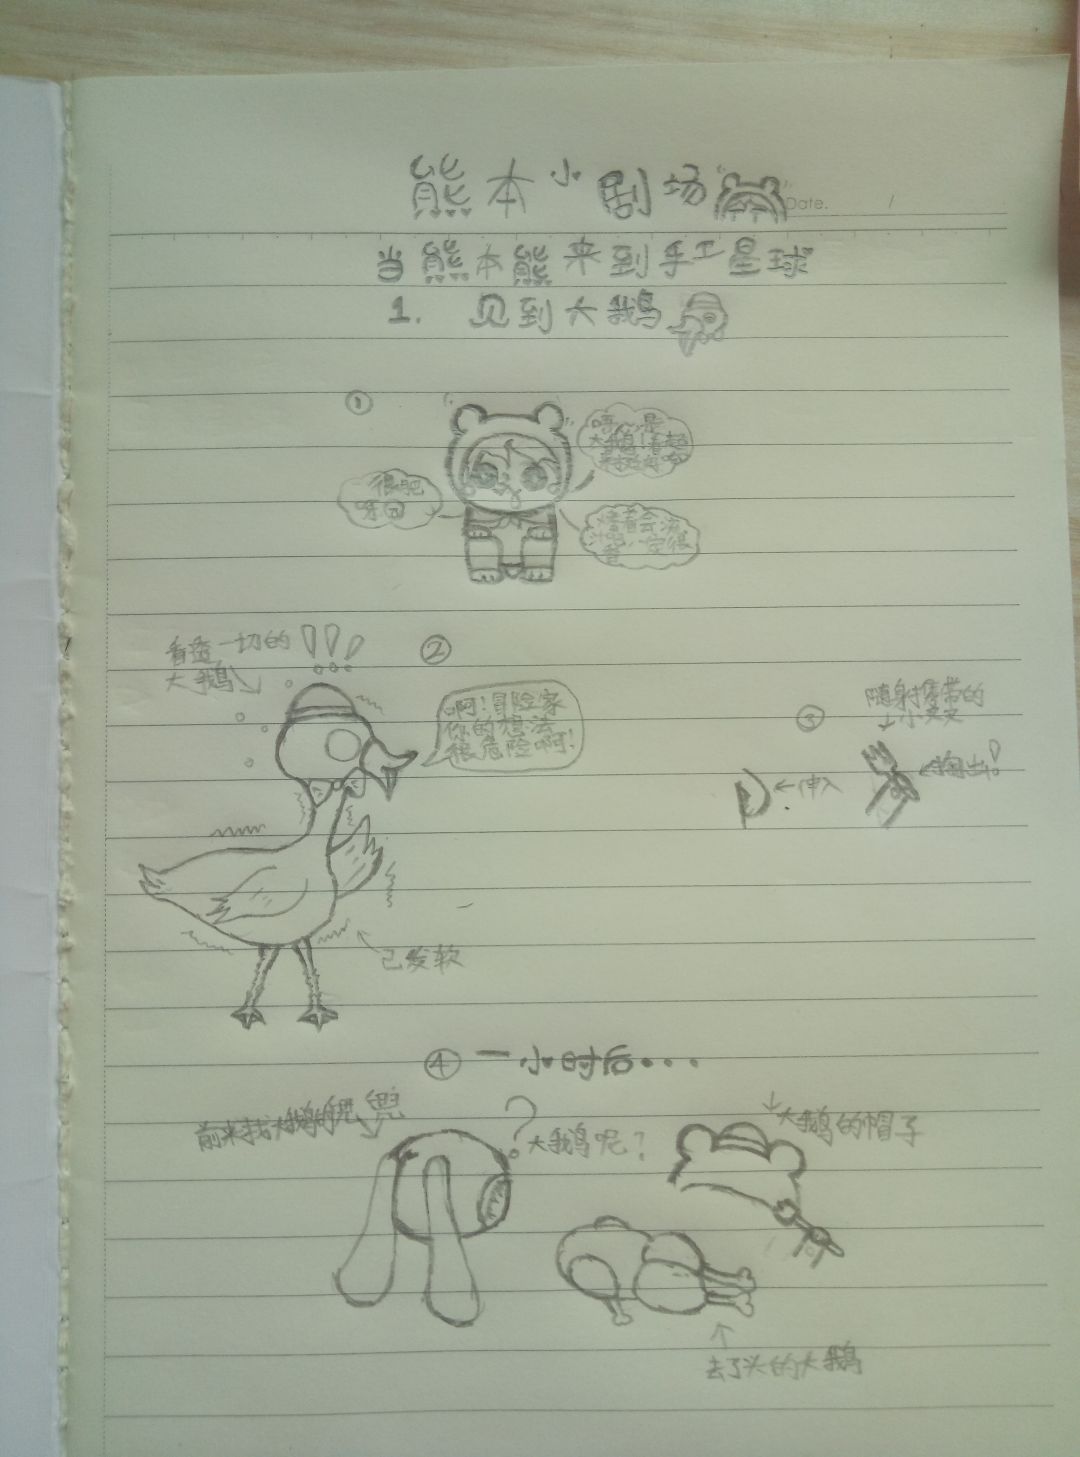 熊本小剧场
Date. /
当熊本熊来到手工星球
1. 见到大鹅
①
呀,是
大鹅!看起
来
很肥
呀
会流
汁吧,一定很
②
看透一切的
大鹅
!!!
啊!冒险家
你的想法
很危险啊!
已发软
③
随身携带的
小叉叉
伸入
掏出!
④ 一小时后...
前来找大鹅的兜兜
?
大鹅呢?
大鹅的帽子
去了头的大鹅